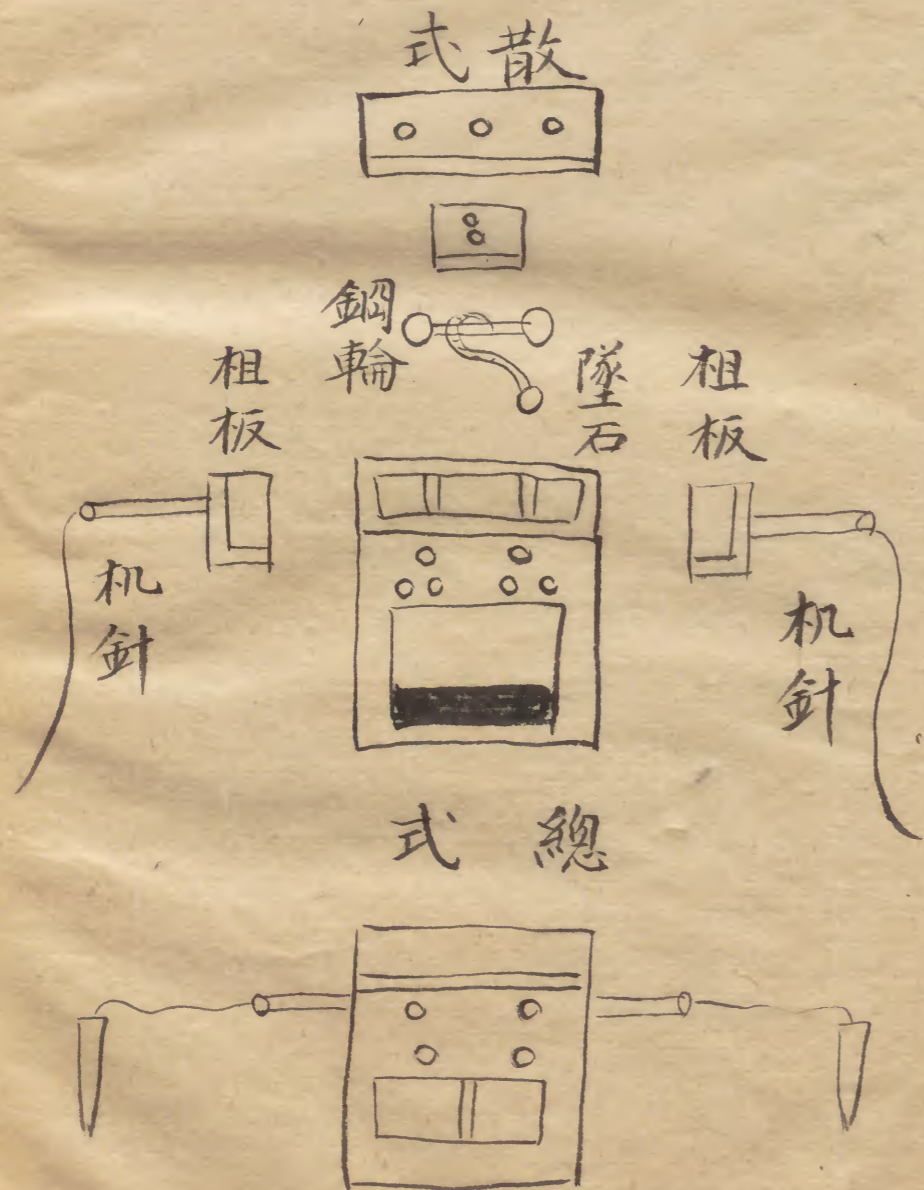 散式
鋼輪
墜石
柤板
柤板
机針
机針
總式